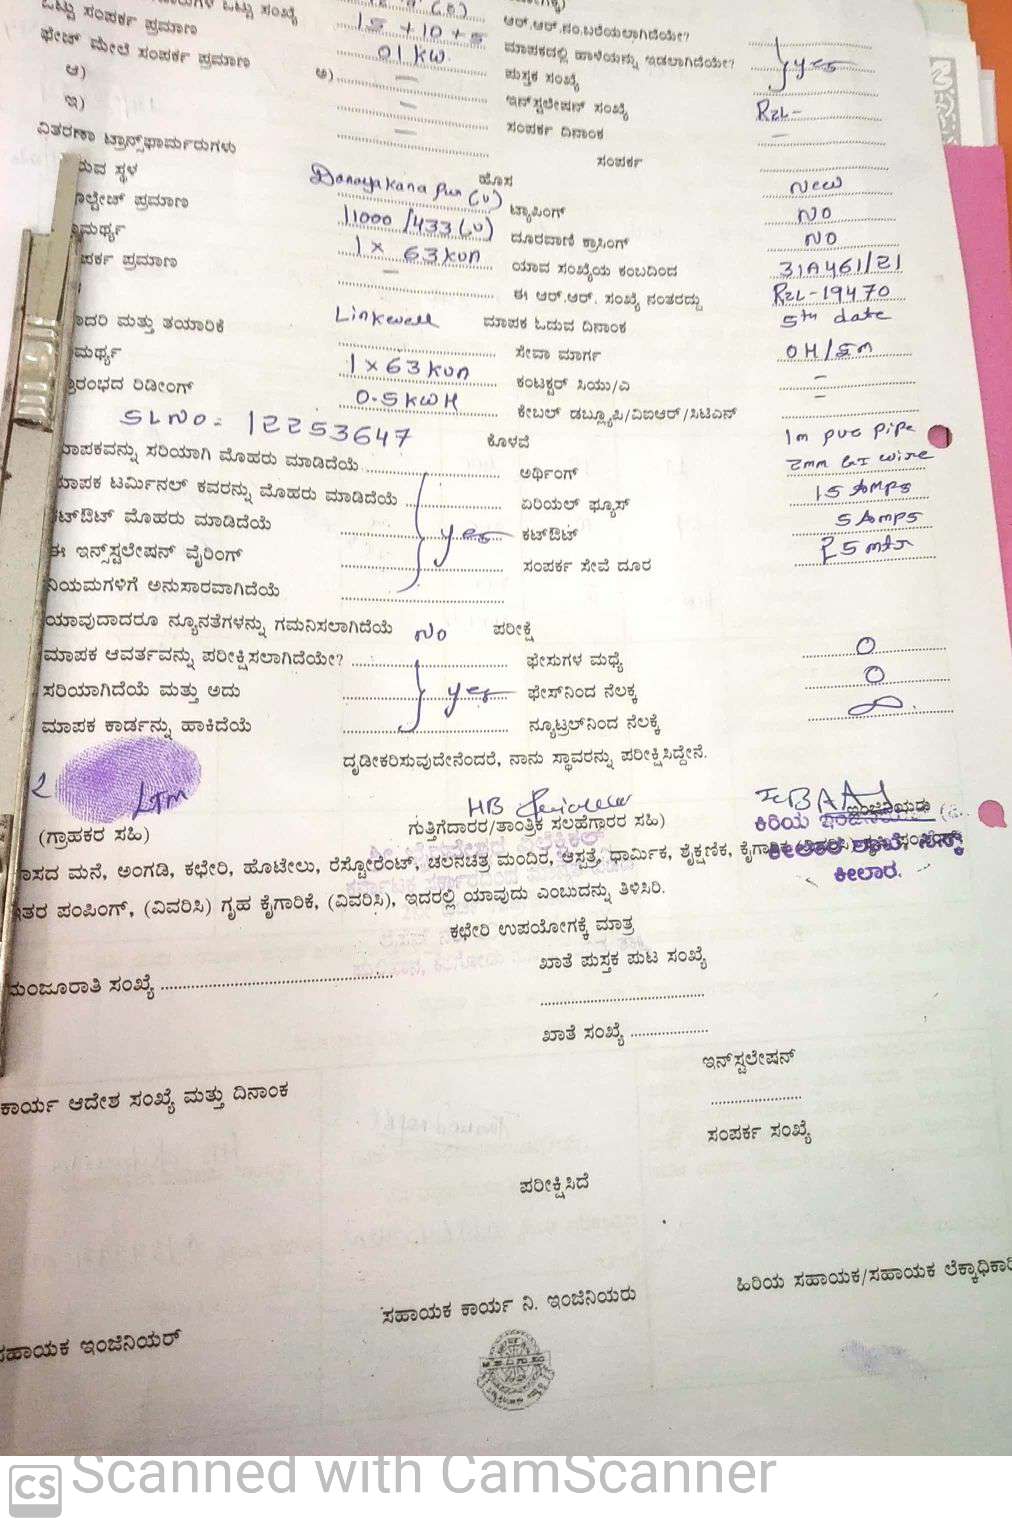 ಒಟ್ಟು ಸಂಪರ್ಕ ಪ್ರಮಾಣ 15 + 10 + 5 ಆರ್.ಆರ್.ನಂ.ಬರೆಯಲಾಗಿದೆಯೇ?
ಫೇಚ್ ಮೇಲೆ ಸಂಪರ್ಕ ಪ್ರಮಾಣ 01 KW. ಮಾಪಕದಲ್ಲಿ ಹಾಳೆಯನ್ನು ಇಡಲಾಗಿದೆಯೇ? yes
ಆ) ಅ) — ಪುಸ್ತಕ ಸಂಖ್ಯೆ
ಇ) — ಇನ್‌ಸ್ಟಲೇಷನ್ ಸಂಖ್ಯೆ RzL-
— ಸಂಪರ್ಕ ದಿನಾಂಕ —
ವಿತರಣಾ ಟ್ರಾನ್ಸ್‌ಫಾರ್ಮರುಗಳು ಸಂಪರ್ಕ
ರುವ ಸ್ಥಳ Danayakana pura (v) ಹೊಸ New
ಲ್ಟೇಜ್ ಪ್ರಮಾಣ 11000 /433 (v) ಟ್ಯಾಪಿಂಗ್ NO
ಮರ್ಥ್ಯ 1 x 63 kva ದೂರವಾಣಿ ಕ್ರಾಸಿಂಗ್ NO
ಪರ್ಕ ಪ್ರಮಾಣ — ಯಾವ ಸಂಖ್ಯೆಯ ಕಂಬದಿಂದ 31A461/21
ಈ ಆರ್.ಆರ್. ಸಂಖ್ಯೆ ನಂತರದ್ದು RzL-19470
ಾದರಿ ಮತ್ತು ತಯಾರಿಕೆ Linkwell ಮಾಪಕ ಓದುವ ದಿನಾಂಕ 5th date
ಮರ್ಥ್ಯ 1 x 63 kva ಸೇವಾ ಮಾರ್ಗ OH/Sm
ರಂಭದ ರಿಡೀಂಗ್ 0.5 KWH ಕಂಟಕ್ಟರ್ ಸಿಯು/ಎ —
ಕೇಬಲ್ ಡಬ್ಲ್ಯೂಪಿ/ವಿಐಆರ್/ಸಿಟಿಎನ್ —
SLNO- 12253647 ಕೊಳವೆ 1m pvc pipe
ಾಪಕವನ್ನು ಸರಿಯಾಗಿ ಮೊಹರು ಮಾಡಿದೆಯೆ ಅರ್ಥಿಂಗ್ 2mm GI wire
ಾಪಕ ಟರ್ಮಿನಲ್ ಕವರನ್ನು ಮೊಹರು ಮಾಡಿದೆಯೆ ಏರಿಯಲ್ ಫ್ಯೂಸ್ 15 Amps
ಟ್‌ಔಟ್ ಮೊಹರು ಮಾಡಿದೆಯೆ yes ಕಟ್‌ಔಟ್ 5 Amps
ಈ ಇನ್‌ಸ್ಟಲೇಷನ್ ವೈರಿಂಗ್ ಸಂಪರ್ಕ ಸೇವೆ ದೂರ 25 mtr
ನಿಯಮಗಳಿಗೆ ಅನುಸಾರವಾಗಿದೆಯೆ
ಯಾವುದಾದರೂ ನ್ಯೂನತೆಗಳನ್ನು ಗಮನಿಸಲಾಗಿದೆಯೆ No ಪರೀಕ್ಷೆ
ಮಾಪಕ ಆವರ್ತವನ್ನು ಪರೀಕ್ಷಿಸಲಾಗಿದೆಯೇ? ಫೇಸುಗಳ ಮಧ್ಯೆ 0
ಸರಿಯಾಗಿದೆಯೆ ಮತ್ತು ಅದು yes ಫೇಸ್‌ನಿಂದ ನೆಲಕ್ಕೆ 0
ಮಾಪಕ ಕಾರ್ಡನ್ನು ಹಾಕಿದೆಯೆ ನ್ಯೂಟ್ರಲ್‌ನಿಂದ ನೆಲಕ್ಕೆ ∞.
ದೃಡೀಕರಿಸುವುದೇನೆಂದರೆ, ನಾನು ಸ್ಥಾವರನ್ನು ಪರೀಕ್ಷಿಸಿದ್ದೇನೆ.
2 LTM HB
(ಗ್ರಾಹಕರ ಸಹಿ) ಗುತ್ತಿಗೆದಾರರ/ತಾಂತ್ರಿಕ ಸಲಹೆಗಾರರ ಸಹಿ) ಕಿರಿಯ ಇಂಜಿನಿಯರು
ಾಸದ ಮನೆ, ಅಂಗಡಿ, ಕಛೇರಿ, ಹೊಟೇಲು, ರೆಸ್ಟೋರೆಂಟ್, ಚಲನಚಿತ್ರ ಮಂದಿರ, ಆಸ್ಪತ್ರೆ, ಧಾರ್ಮಿಕ, ಶೈಕ್ಷಣಿಕ,
ತರ ಪಂಪಿಂಗ್, (ವಿವರಿಸಿ) ಗೃಹ ಕೈಗಾರಿಕೆ, (ವಿವರಿಸಿ), ಇದರಲ್ಲಿ ಯಾವುದು ಎಂಬುದನ್ನು ತಿಳಿಸಿರಿ. ಕೀಲಾರ.
ಕಛೇರಿ ಉಪಯೋಗಕ್ಕೆ ಮಾತ್ರ
ಮಂಜೂರಾತಿ ಸಂಖ್ಯೆ ಖಾತೆ ಪುಸ್ತಕ ಪುಟ ಸಂಖ್ಯೆ
ಖಾತೆ ಸಂಖ್ಯೆ
ಇನ್‌ಸ್ಟಲೇಷನ್
ಕಾರ್ಯ ಆದೇಶ ಸಂಖ್ಯೆ ಮತ್ತು ದಿನಾಂಕ
ಸಂಪರ್ಕ ಸಂಖ್ಯೆ
ಪರೀಕ್ಷಿಸಿದೆ
ಸಹಾಯಕ ಇಂಜಿನಿಯರ್ ಸಹಾಯಕ ಕಾರ್ಯ ನಿ. ಇಂಜಿನಿಯರು ಹಿರಿಯ ಸಹಾಯಕ/ಸಹಾಯಕ ಲೆಕ್ಕಾಧಿಕಾರಿ
CS Scanned with CamScanner